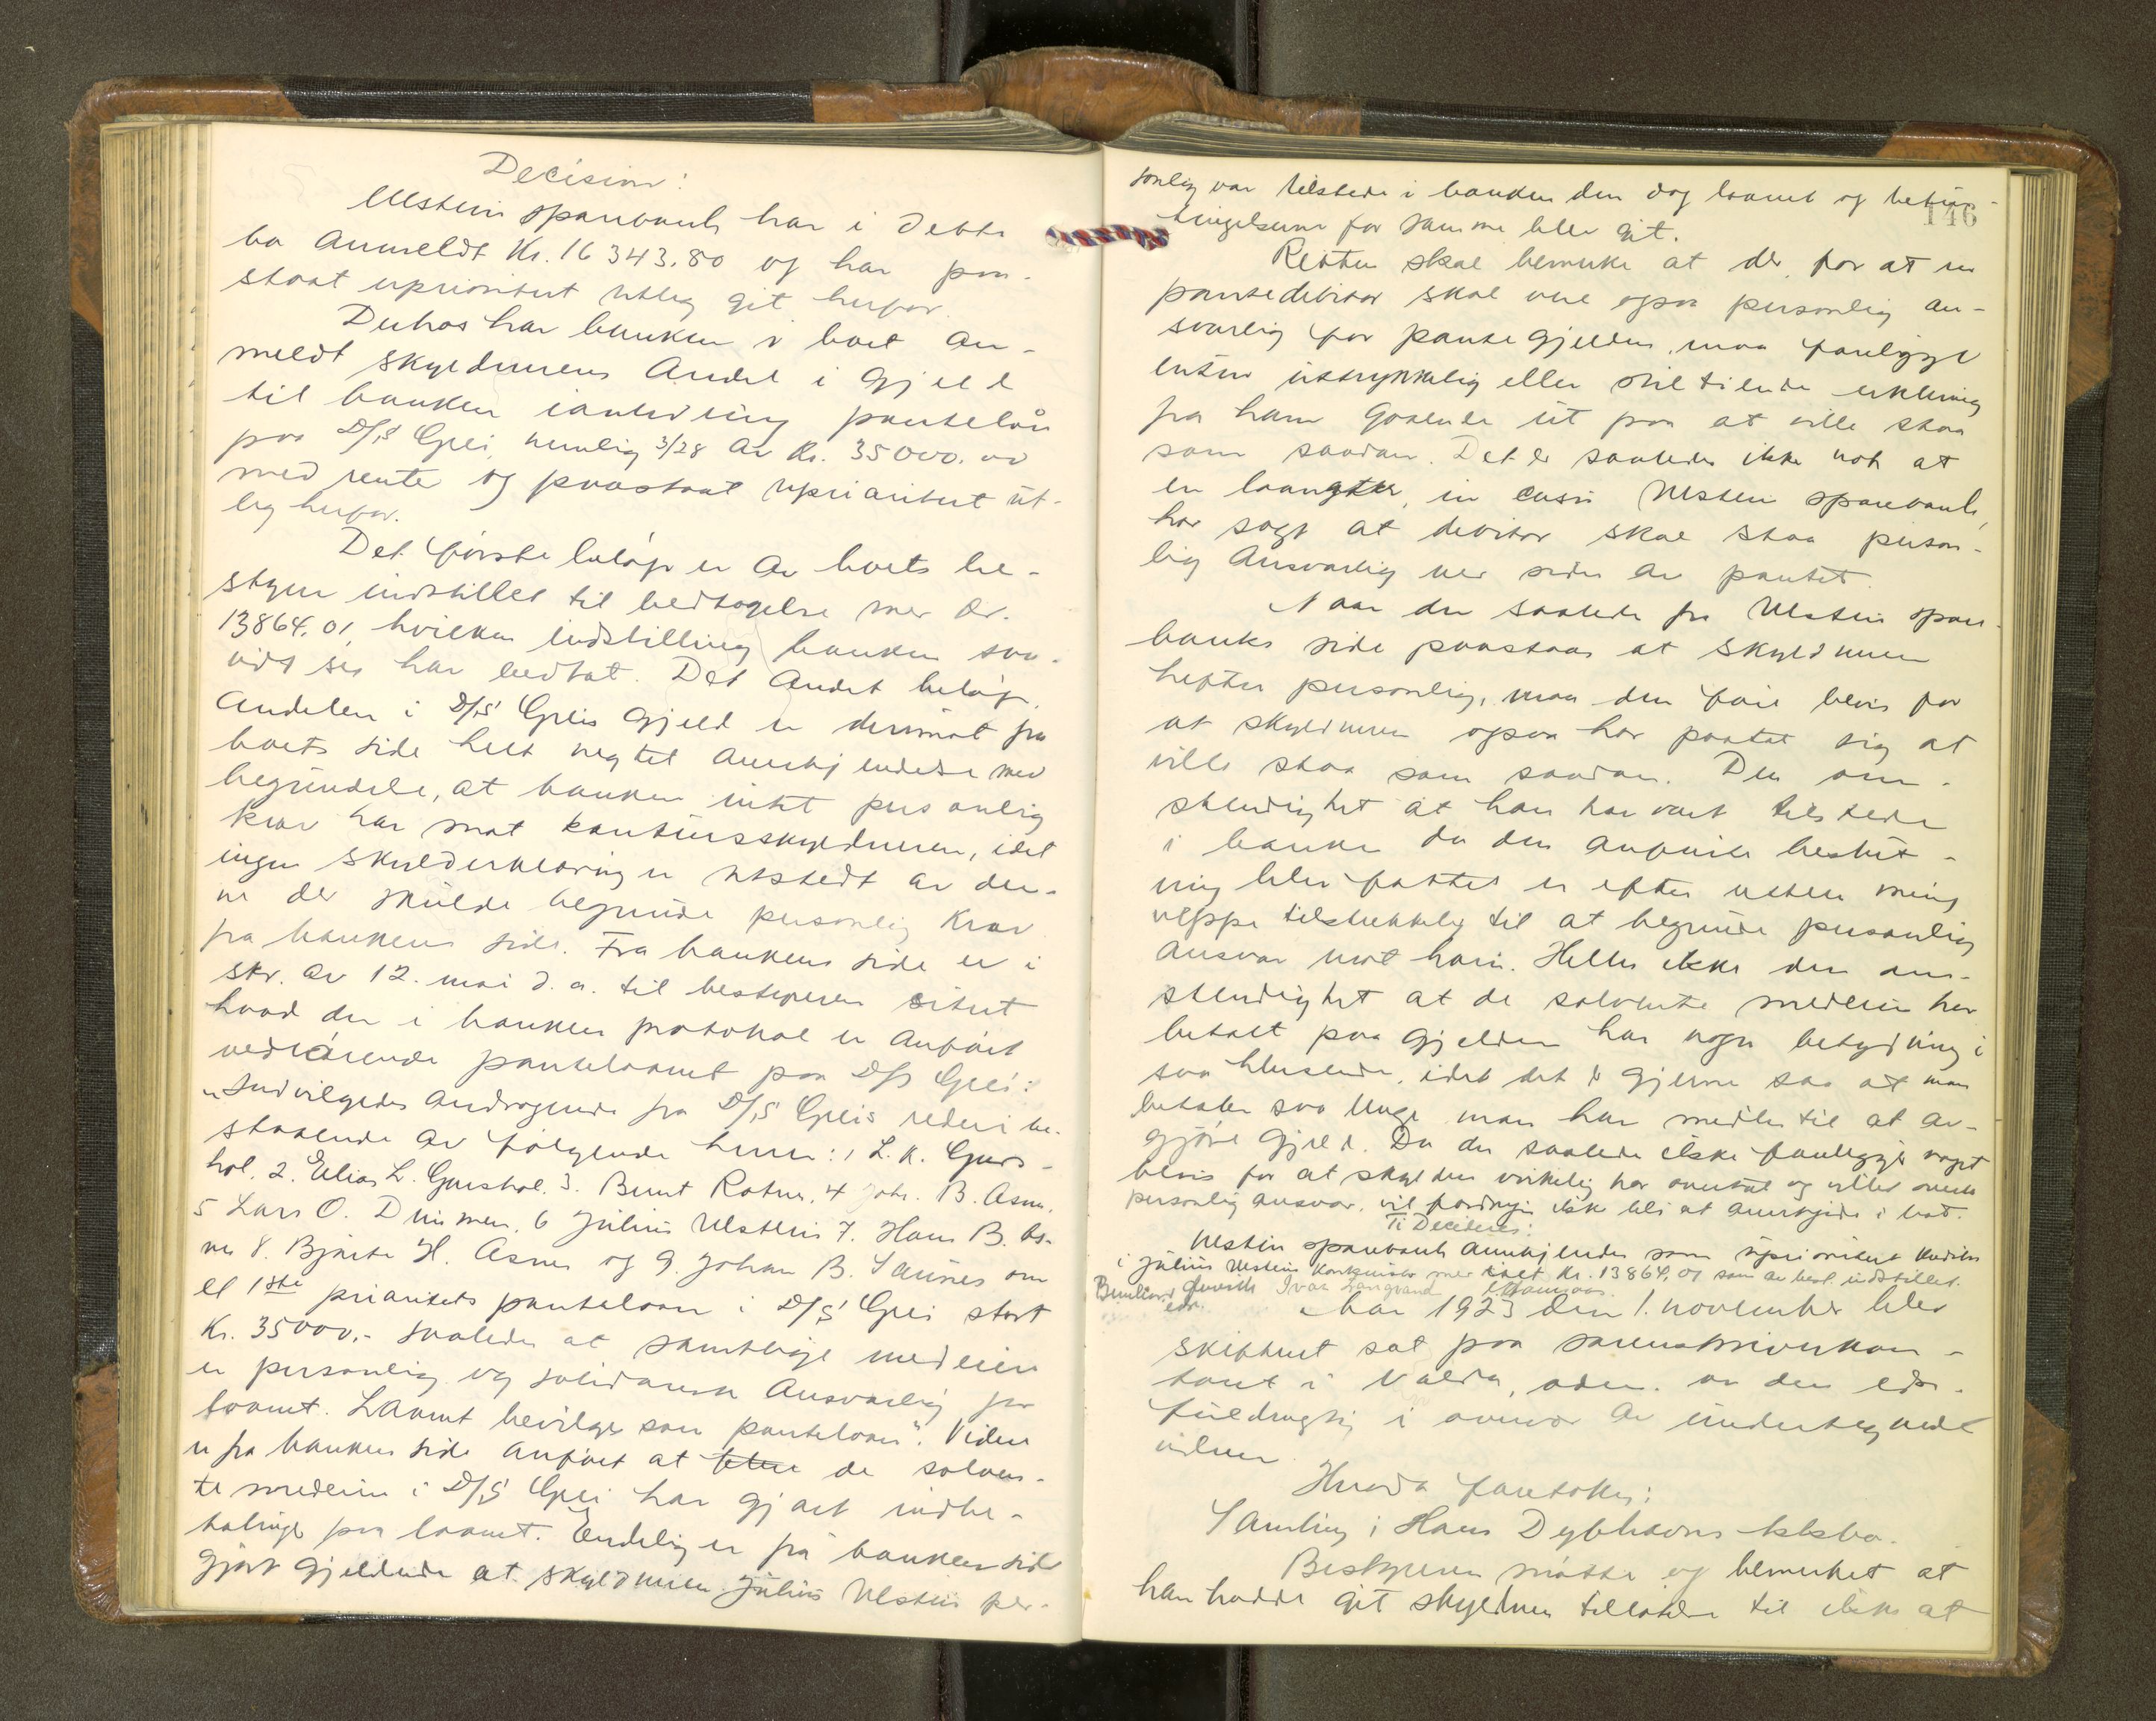 Decision:
Ulstein sparebank har i dette
bo anmeldt Kr. 16 343.80 og har paa-
staat uprioritert utlæg git herfor.
Derhos har banken i boet an-
meldt skyldnerens andel i gjeld
til banken i anledning pantelån
paa D/S Grei, nemlig 3/28 av Kr. 35000.00
med rente og paastaat uprioritert ut-
læg herfor.
Det første beløp er av boets be-
styrer indstillet til vedtagelse med Kr.
13864.01, hvilken indstilling banken saa-
vidt sees har vedtat. Det andet beløp,
andelen i D/S Greis gjeld er derimot fra
boets side helt negtet anerkjendelse med
begrundelse, at banken intet personlig
krav har mot konkursskyldneren, idet
ingen skylderklæring er utstedt av den-
ne der skulde begrunde personlig krav
fra bankens side. Fra bankens side er i
skr. av 12. mai d.a. til bestyreren citert
hvad der i bankens protokol er anført
vedrørende pantelaanet paa D/S Grei:
"Indvilgedes andragende fra D/S Greis rederi be-
staaende av følgende herrer: 1 L. K. Gurs-
hol. 2. Elias L. Gurshol. 3. Bernt Rotne. 4 Johs. B. Asnes.
5 Lars O. Dimmen. 6 Julius Ulstein 7. Hans B. As-
nes 8. Bjarte H. Asnes og 9. Johan B. Saunes om
et 1ste prioritets pantelaan i D/S Grei stort
Kr. 35000.- saaledes at samtlige medeiere
er personlig og solidarisk ansvarlig for
laanet. Laanet bevilges som pantelaan". Videre
er fra bankens side anført at de solven-
te medeiere i D/S Grei har gjort indbe-
talinger paa laanet. Endelig er fra bankens side
gjort gjeldende at skyldneren Julius Ulstein per-
146
sonlig var tilstede i banken den dag laanet og betin-
gelserne for samme blev git.
Retten skal bemerke at der, for at en
pantedebitor skal være ogsaa personlig an-
svarlig for pantegjelden, maa foreligge
enten uttrykkelig eller stiltiende erklæring
fra ham gaaende ut paa at ville staa
som saadan. Det er saaledes ikke nok at
en laangiver, in casu Ulstein sparebank,
har sagt at debitor skal staa person-
lig ansvarlig ved siden av pantet.
Naar der saaledes fra Ulstein spare-
banks side paastaaes at skyldneren
hefter personlig, maa den føre bevis for
at skyldneren ogsaa har paatat sig at
ville staa som saadan. Den om-
stendighet at han har vært tilstede
i banken da den anførte beslut-
ning blev fattet er efter rettens mening
neppe tilstrekkelig til at begrunde personlig
ansvar mot ham. Heller ikke den om-
stendighet at de solvente medeiere har
betalt paa gjelden har nogen betydning i
saa henseende, idet det er gjerne saa at man
betaler saa lenge man har midler til at av-
gjøre gjeld. Da der saaledes ikke foreligger noget
bevis for at skyldneren virkelig har overtat og villet overta
personlig ansvar, vil fordringen ikke bli at anerkjende i boet.
Ti Decideres:
Ulstein sparebank anerkjendes som uprioritert kreditor
i Julius Ulsteins konkursbo med beløp Kr. 13864.01 som av best. indstillet.
Aar 1923 den 1. november blev
skifteret sat paa sorenskriverkon-
toret i Volda, adm. av den eds.
fuldmegtig i overvær av undertegnede
vidner
Hvorda foretokes:
Samling i Hans Dybhavns kksbo.
Bestyreren møtte og bemerket at
han hadde git skyldneren tillatelse til ikke at